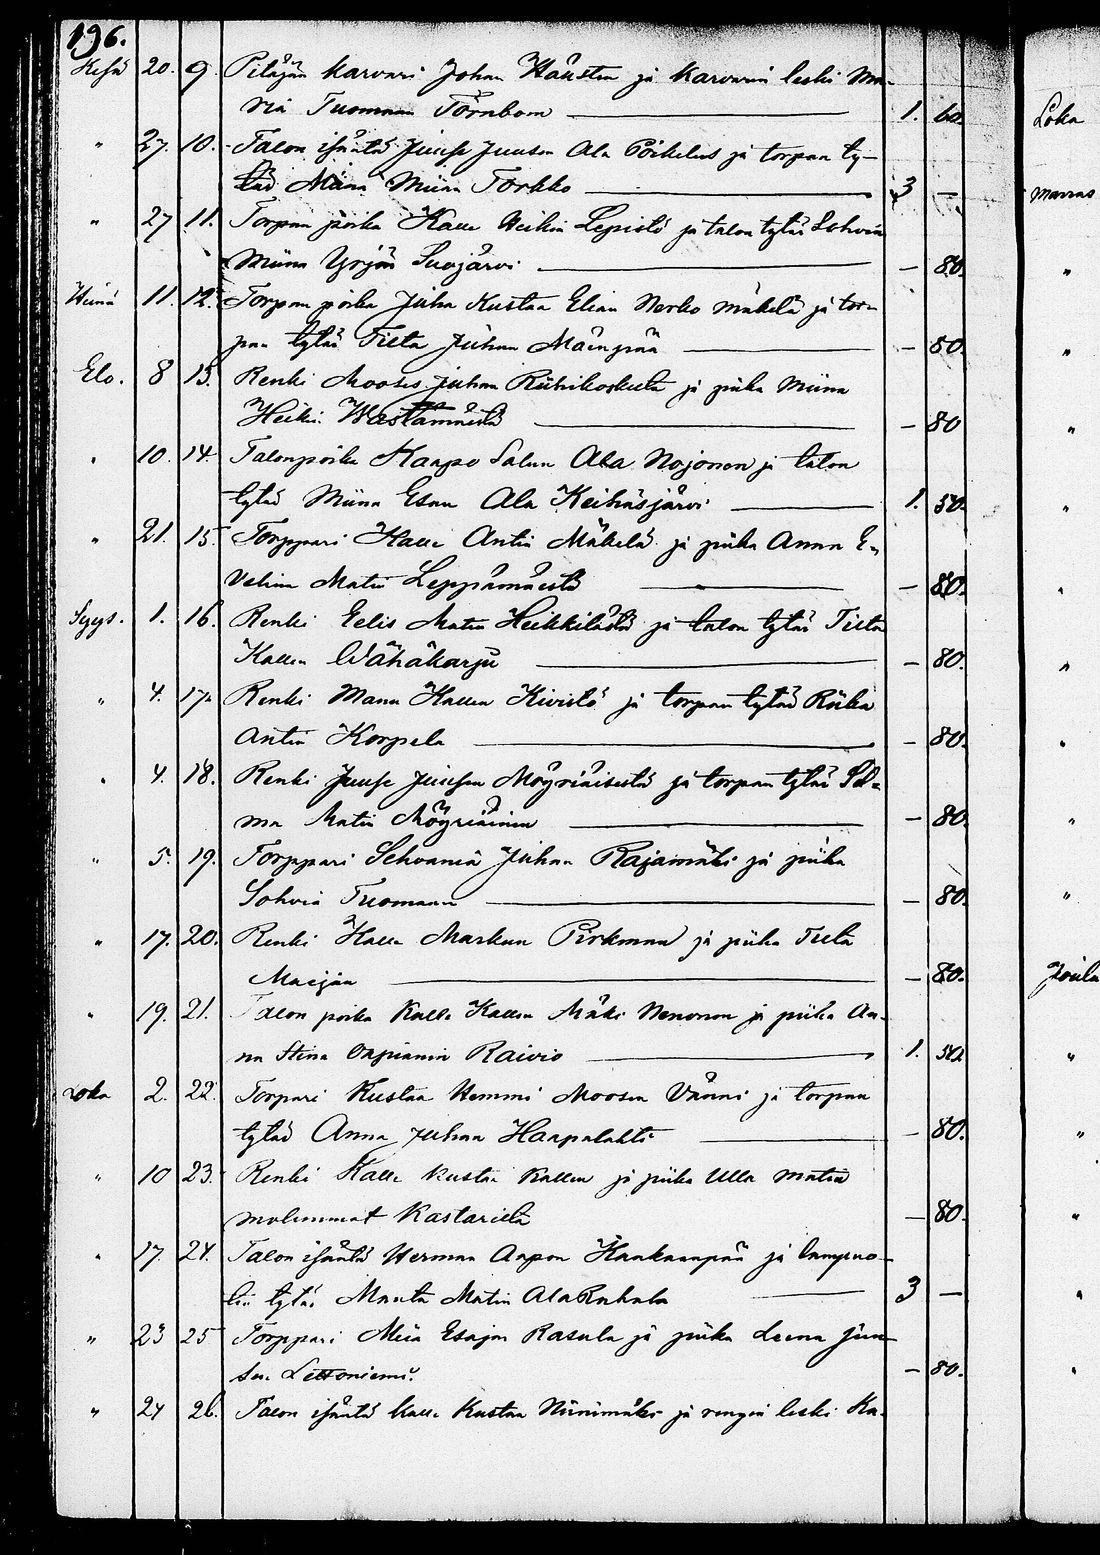 196.
Kesä 20. 9. Pitäjän karvari Johan Hausten ja karvarin leski Ma-
ria Tuomaan Törnbom 1. 60.
" 27. 10. Talon isäntä Juuse Juusen Ala Pöikelus ja torpan ty-
tär Miina Torkko 3 —
" 27 11. Torpan poika Kalle Heikin Lepistö ja talon tytär Sohvia
Miina Yrjön Suojärvi — 80.
Heinä 11. 12. Torpan poika Juha Kustaa Elian Norko mäkelä ja tor-
pan tytär Tilta Juhan Mäenpää — 80.
Elo. 8 13. Renki Mooses Juhan Riihikoskelta ja piika Miina
Heikin Wästämäestä — 80
" 10. 14. Talonpoika Kaapo Salun Ala Nojonen ja talon
tytär Miina Esan Ala Keihäsjärvi 1. 50.
" 21. 15. Torppari Kalle Antin Mäkelä ja piika Anna E-
velina Matin Leppämäestä — 80.
Syys. 1. 16. Renki Eelis Matin Heikkilästä ja talon tytär Tilta
Kallen Wähäkarju — 80.
" 4. 17. Renki Manu Kallen Kivistö ja torpan tytär Riika
Antin Korpela — 80.
" 4. 18. Renki Juuse Juusen Möyriäisestä ja torpan tytär Sel-
ma Matin Möyriäinen — 80.
" 5. 19. Torppari Sehvania Juhan Rajamäki ja piika
Sohvia Tuomaan — 80.
" 17. 20. Renki Kalle Markun Pirkman ja piika Tilta
Maijan — 80.
" 19. 21. Talon poika Kalle Kallen Mäki Nenonen ja piika An-
na Stina Raivio 1. 50.
Loka 2. 22. Torpari Kustaa Hemmi Moosen Vänni ja torpan
tytär Anna Juhan Haapalahti — 80.
" 10 23. Renki Kalle Kustaa Kallen ja piika Ulla Matin
molemmat Kastarilta — 80.
" 17. 24. Talon isäntä Herman Aapon Kankaanpää ja lampuo-
tin tytär Manta Matin Ala Rahala 3 —
" 23 25 Torppari Miia Esajan Rasula ja piika Leena Juu-
sen Lettoniemi. — 80.
" 24 26. Talon isäntä Kalle Kustaa Niinimäki ja rengin leski Ka-
Loka
Marras
"
"
"
"
"
"
"
"
"
Joulu
"
"
"
"
"